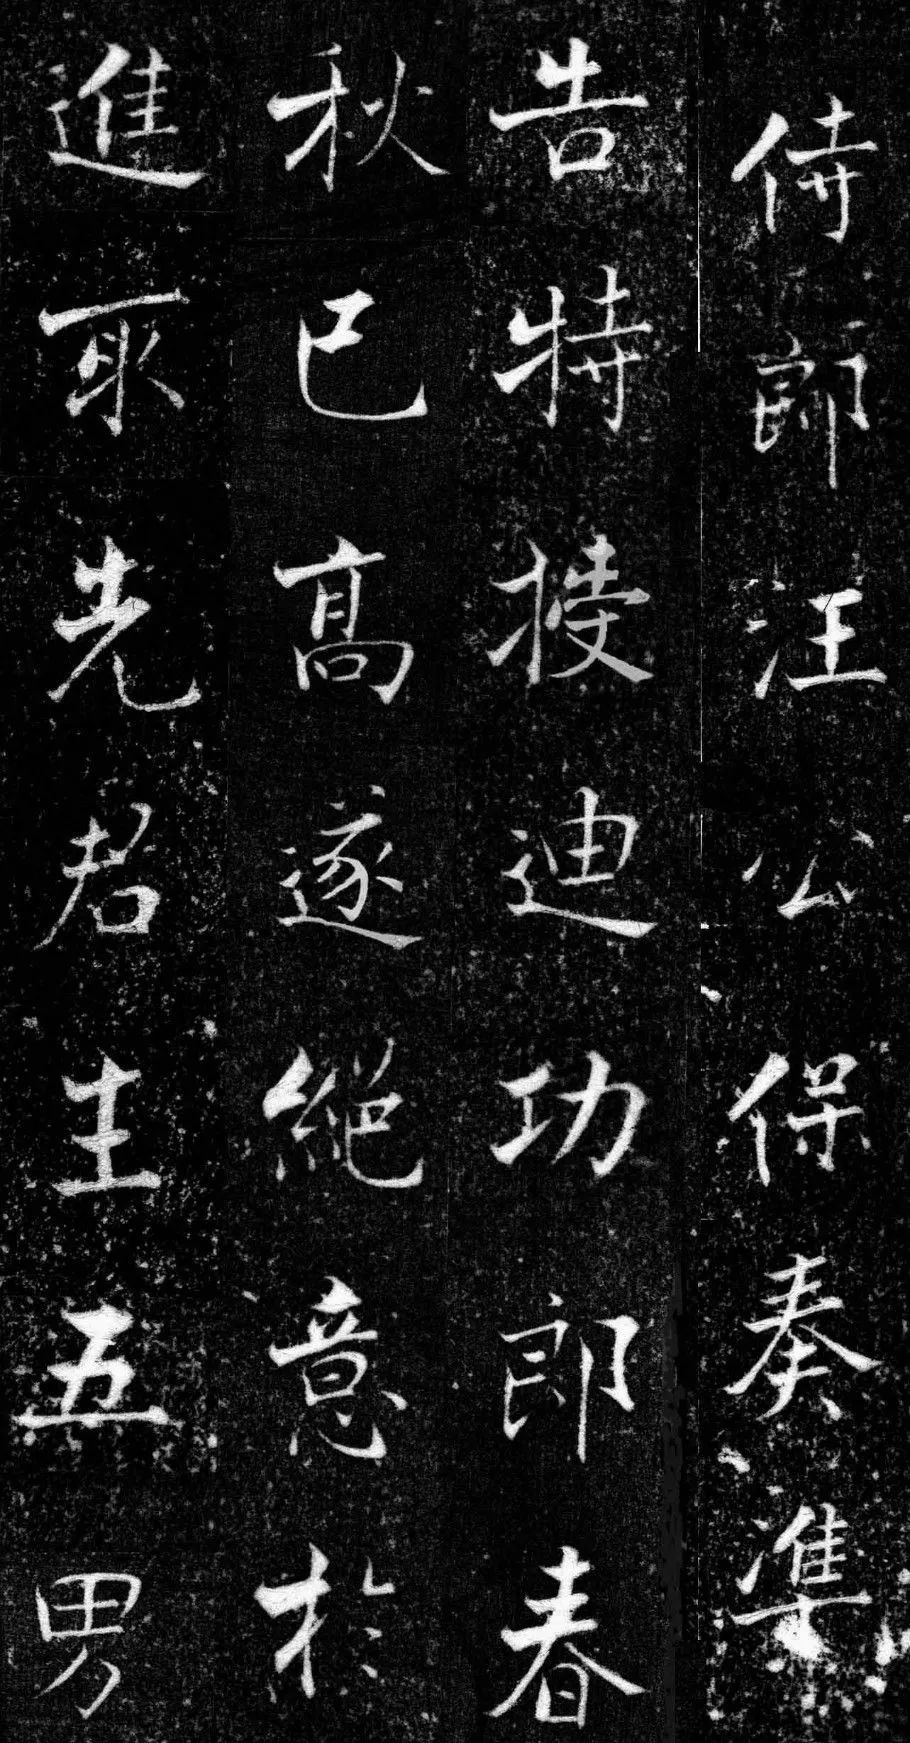 侍郎汪公保奏準
告特授迪功郎春
秋已高遂絕意於
進取先君生五男